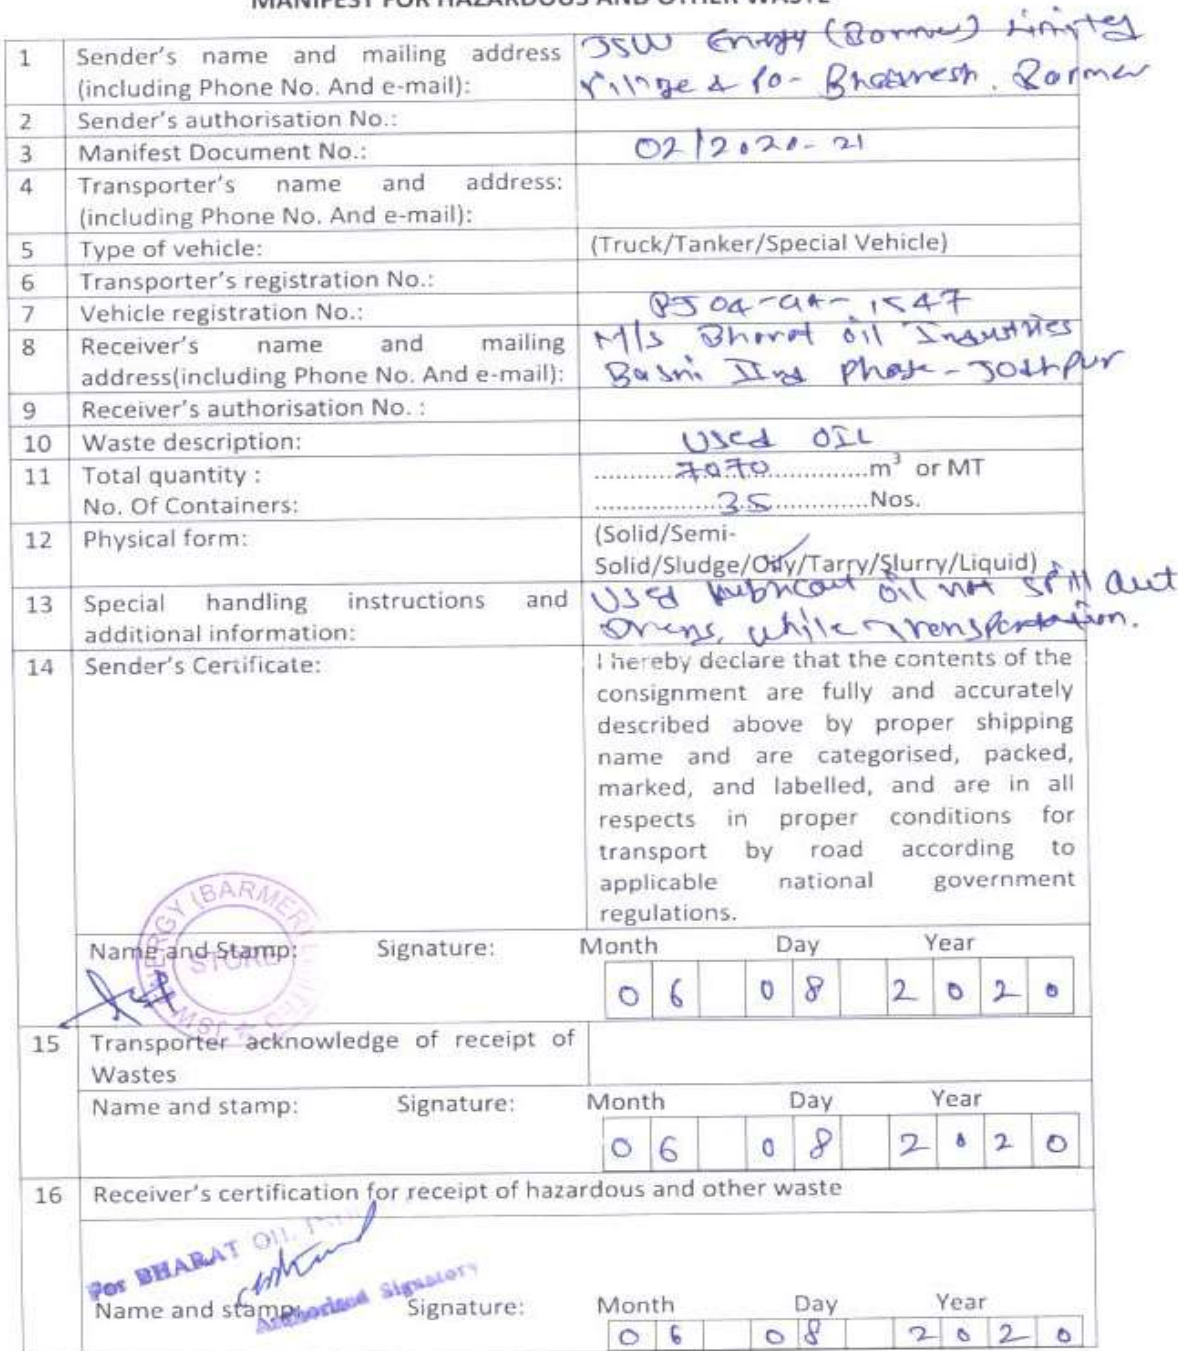 MANIFEST FOR HAZARDOUS AND OTHER WASTE
1 Sender's name and mailing address (including Phone No. And e-mail):
JSW Energy (Barmer) Limited
Village & Po- Bhadresh, Barmer
2 Sender's authorisation No.:
3 Manifest Document No.: 02/2020-21
4 Transporter's name and address:
(including Phone No. And e-mail):
5 Type of vehicle: (Truck/Tanker/Special Vehicle)
6 Transporter's registration No.:
7 Vehicle registration No.: RJ 04-GA-1547
8 Receiver's name and mailing
address(including Phone No. And e-mail):
M/s Bharat oil Industries
Basni IInd Phase - Jodhpur
9 Receiver's authorisation No. :
10 Waste description: Used OIL
11 Total quantity : ............7070..............m³ or MT
No. Of Containers: .................35.............Nos.
12 Physical form: (Solid/Semi-
Solid/Sludge/Oily/Tarry/Slurry/Liquid)
13 Special handling instructions and
additional information:
Used lubricant oil not spill out
while transportation.
14 Sender's Certificate: I hereby declare that the contents of the
consignment are fully and accurately
described above by proper shipping
name and are categorised, packed,
marked, and labelled, and are in all
respects in proper conditions for
transport by road according to
applicable national government
regulations.
ENERGY (BARMER)
STORE
JSW
Name and Stamp: Signature: Month Day Year
06 08 2020
15 Transporter acknowledge of receipt of
Wastes
Name and stamp: Signature: Month Day Year
06 08 2020
16 Receiver's certification for receipt of hazardous and other waste
For BHARAT OIL
Authorised Signatory
Name and stamp: Signature: Month Day Year
06 08 2020